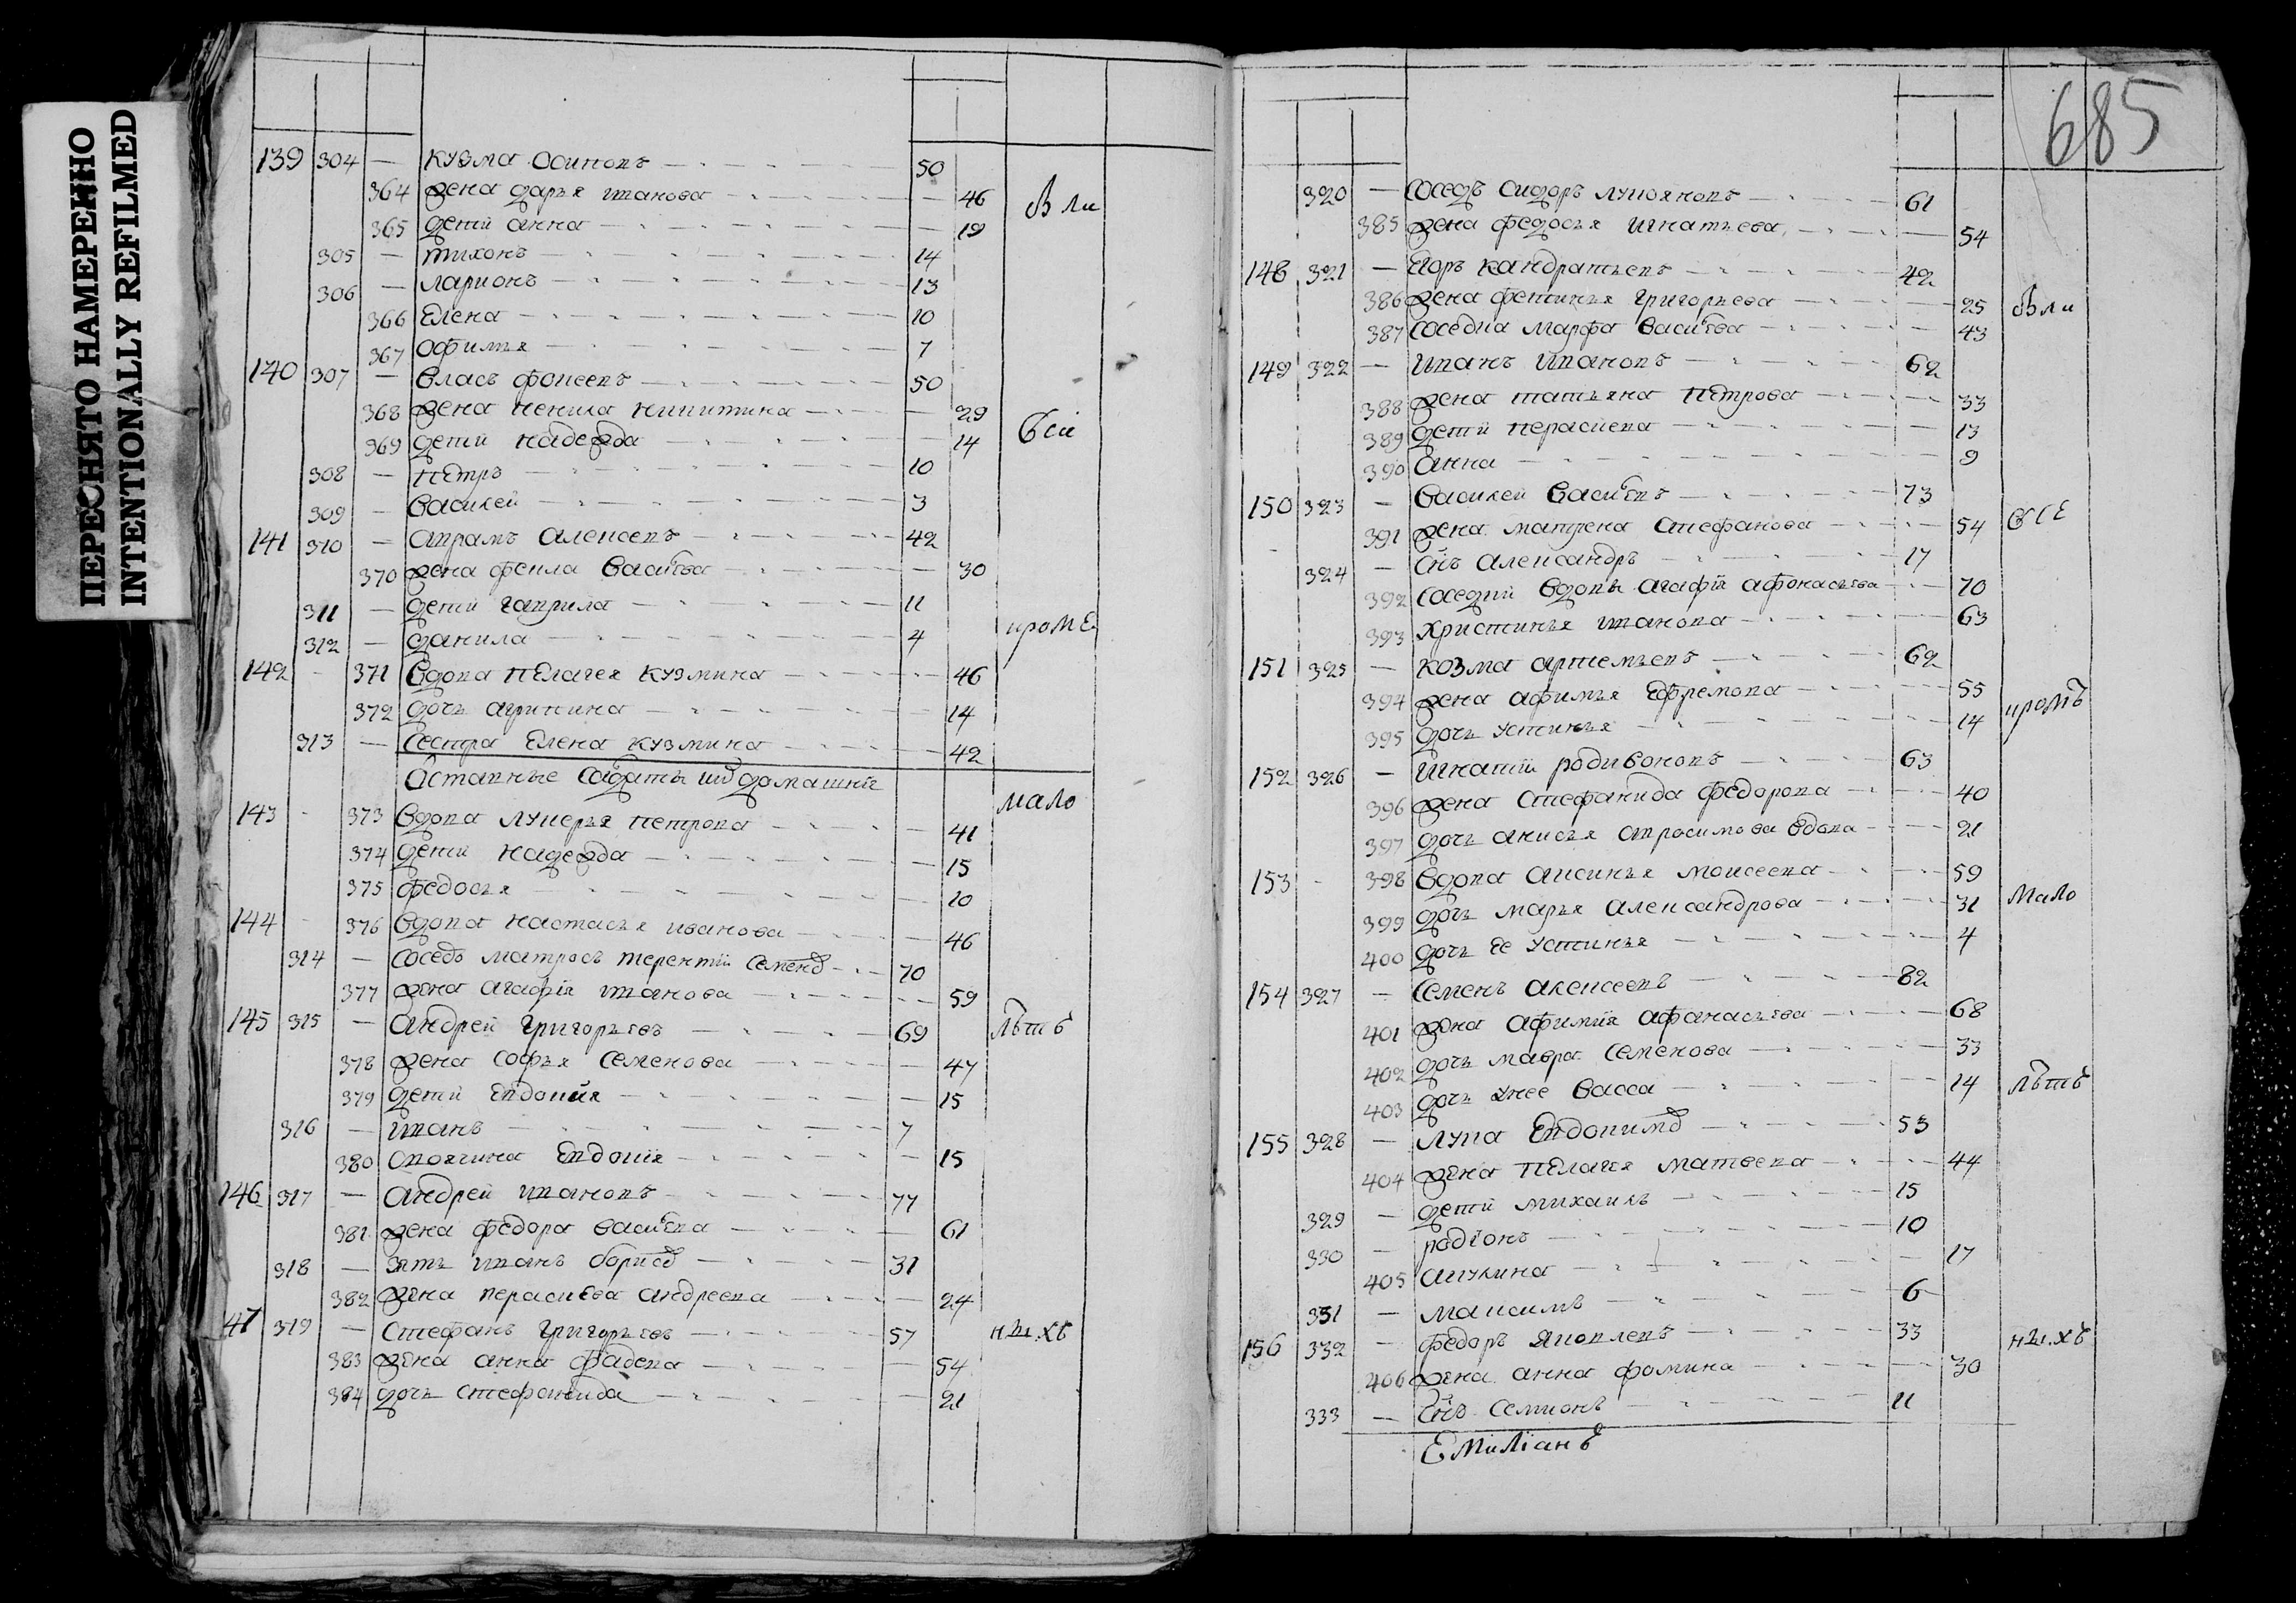 ПЕРЕСНЯТО НАМЕРЕННО
INTENTIONALLY REFILMED
139 304 — кузма осиповъ 50
364 жена дарья иванова 46 Были
365 дети анна 19
305 — тихонъ 14
306 — ларионъ 13
366 Елена 10
367 офимья 7
140 307 — власъ фокеевъ 50
368 жена ненила никитина 29 Всѣ
369 дети надежда 14
308 — петръ 10
309 — василей 3
141 310 — аврамъ алексеевъ 42
370 жена фекла васильева 30
311 — дети гаврила 11
312 — данила 4 кромЕ
142 - 371 вдова пелагея кузмина 46
372 дочь агрипина 14
313 — Сестра Елена кузмина 42
Оставные салдаты и ихъ домашние
мало
143 - 373 вдова лукерья петрова 41
374 дети надежда 15
375 федосья 10
144 - 376 вдова настасья иванова 46
314 — соседъ матросъ терентий Семеновъ 70
377 жена агафiя иванова 59
145 315 — андрей григорьевъ 69 лѣтъ
378 жена софья Семенова 47
379 дети Евдокия 15
316 — иванъ 7
380 своячина Евдокiя 15
146 317 — андрей ивановъ 77
381 жена федора васильева 61
318 — зять иванъ борисовъ 31
382 жена парасковья андреева 24
147 319 — Стефанъ григорьевъ 57 ныхъ
383 жена анна фадеева 54
384 дочь стефанида 21
685
320 — соседъ сидоръ лукояновъ 61
385 жена федосья игнатьева 54
148 321 — Егоръ кандратьевъ 42
386 жена фетинья григорьева 25 Были
387 соседка марфа васильева 43
149 322 — иванъ ивановъ 62
388 жена татьяна петрова 33
389 дети парасковья 13
390 анна 9
150 323 — василей васильевъ 73
391 жена матрена стефанова 54 ВСЕ
324 — снъ александръ 17
392 соседки вдовы агафiя афонасьева 70
393 христинья иванова 63
151 325 — козма артемьевъ 62
394 жена афимья Ефремова 55
395 дочь устинья 14 кромѣ
152 326 — игнатiй родивоновъ 63
396 жена стефанида федорова 40
397 дочь анисья вдова 21
153 - 398 вдова аксинья моисеева 59
399 дочь марья александрова 31 Мало
400 дочь ее устинья 4
154 327 — семенъ алексеевъ 82
401 жена афимия афанасьева 68
402 дочь мавра семенова 33
403 дочь у нее васса 14 лѣтъ
155 328 — лука Евдокимовъ 53
404 жена пелагея матвеева 44
329 — дети михаилъ 15
330 — родiонъ 10
405 акулина 17
331 — максимъ 6
156 332 — федоръ яковлевъ 33 ныхъ
406 жена анна фомина 30
333 — снъ семионъ 11
Емилiанъ